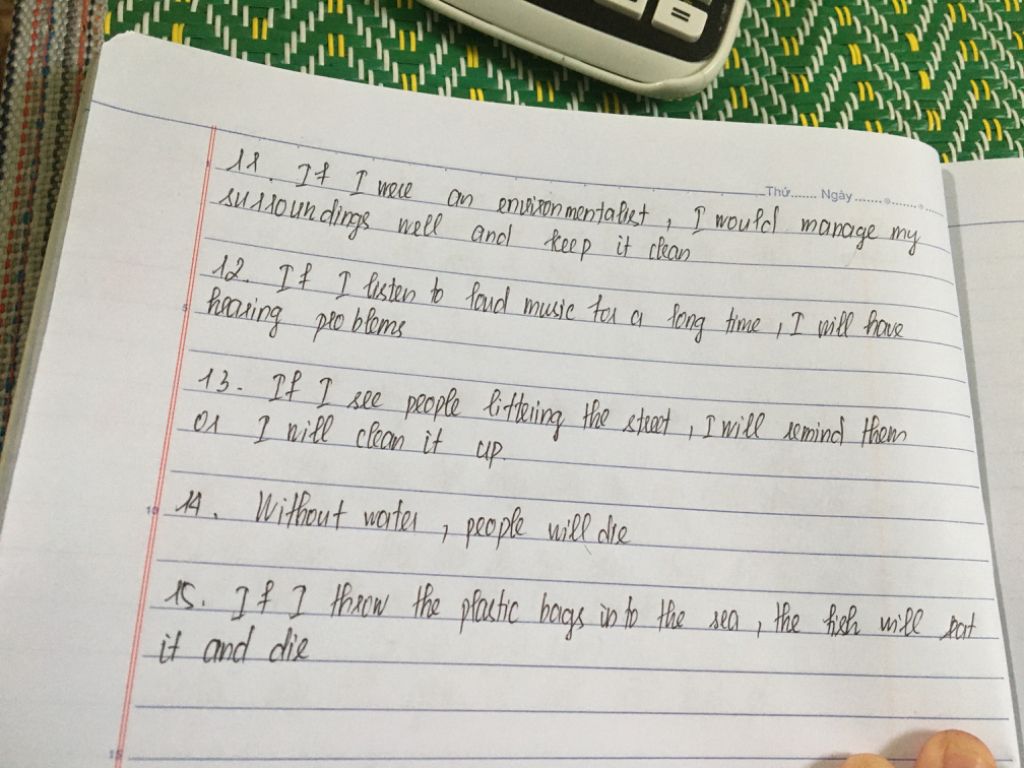 Thứ...... Ngày...............
11. If I were an environmentalist, I would manage my
surroundings well and keep it clean
12. If I listen to loud music for a long time, I will have
hearing problems
13. If I see people littering the street, I will remind them
or I will clean it up.
14. Without water, people will die
15. If I throw the plastic bags in to the sea, the fish will eat
it and die
5
10
15
=